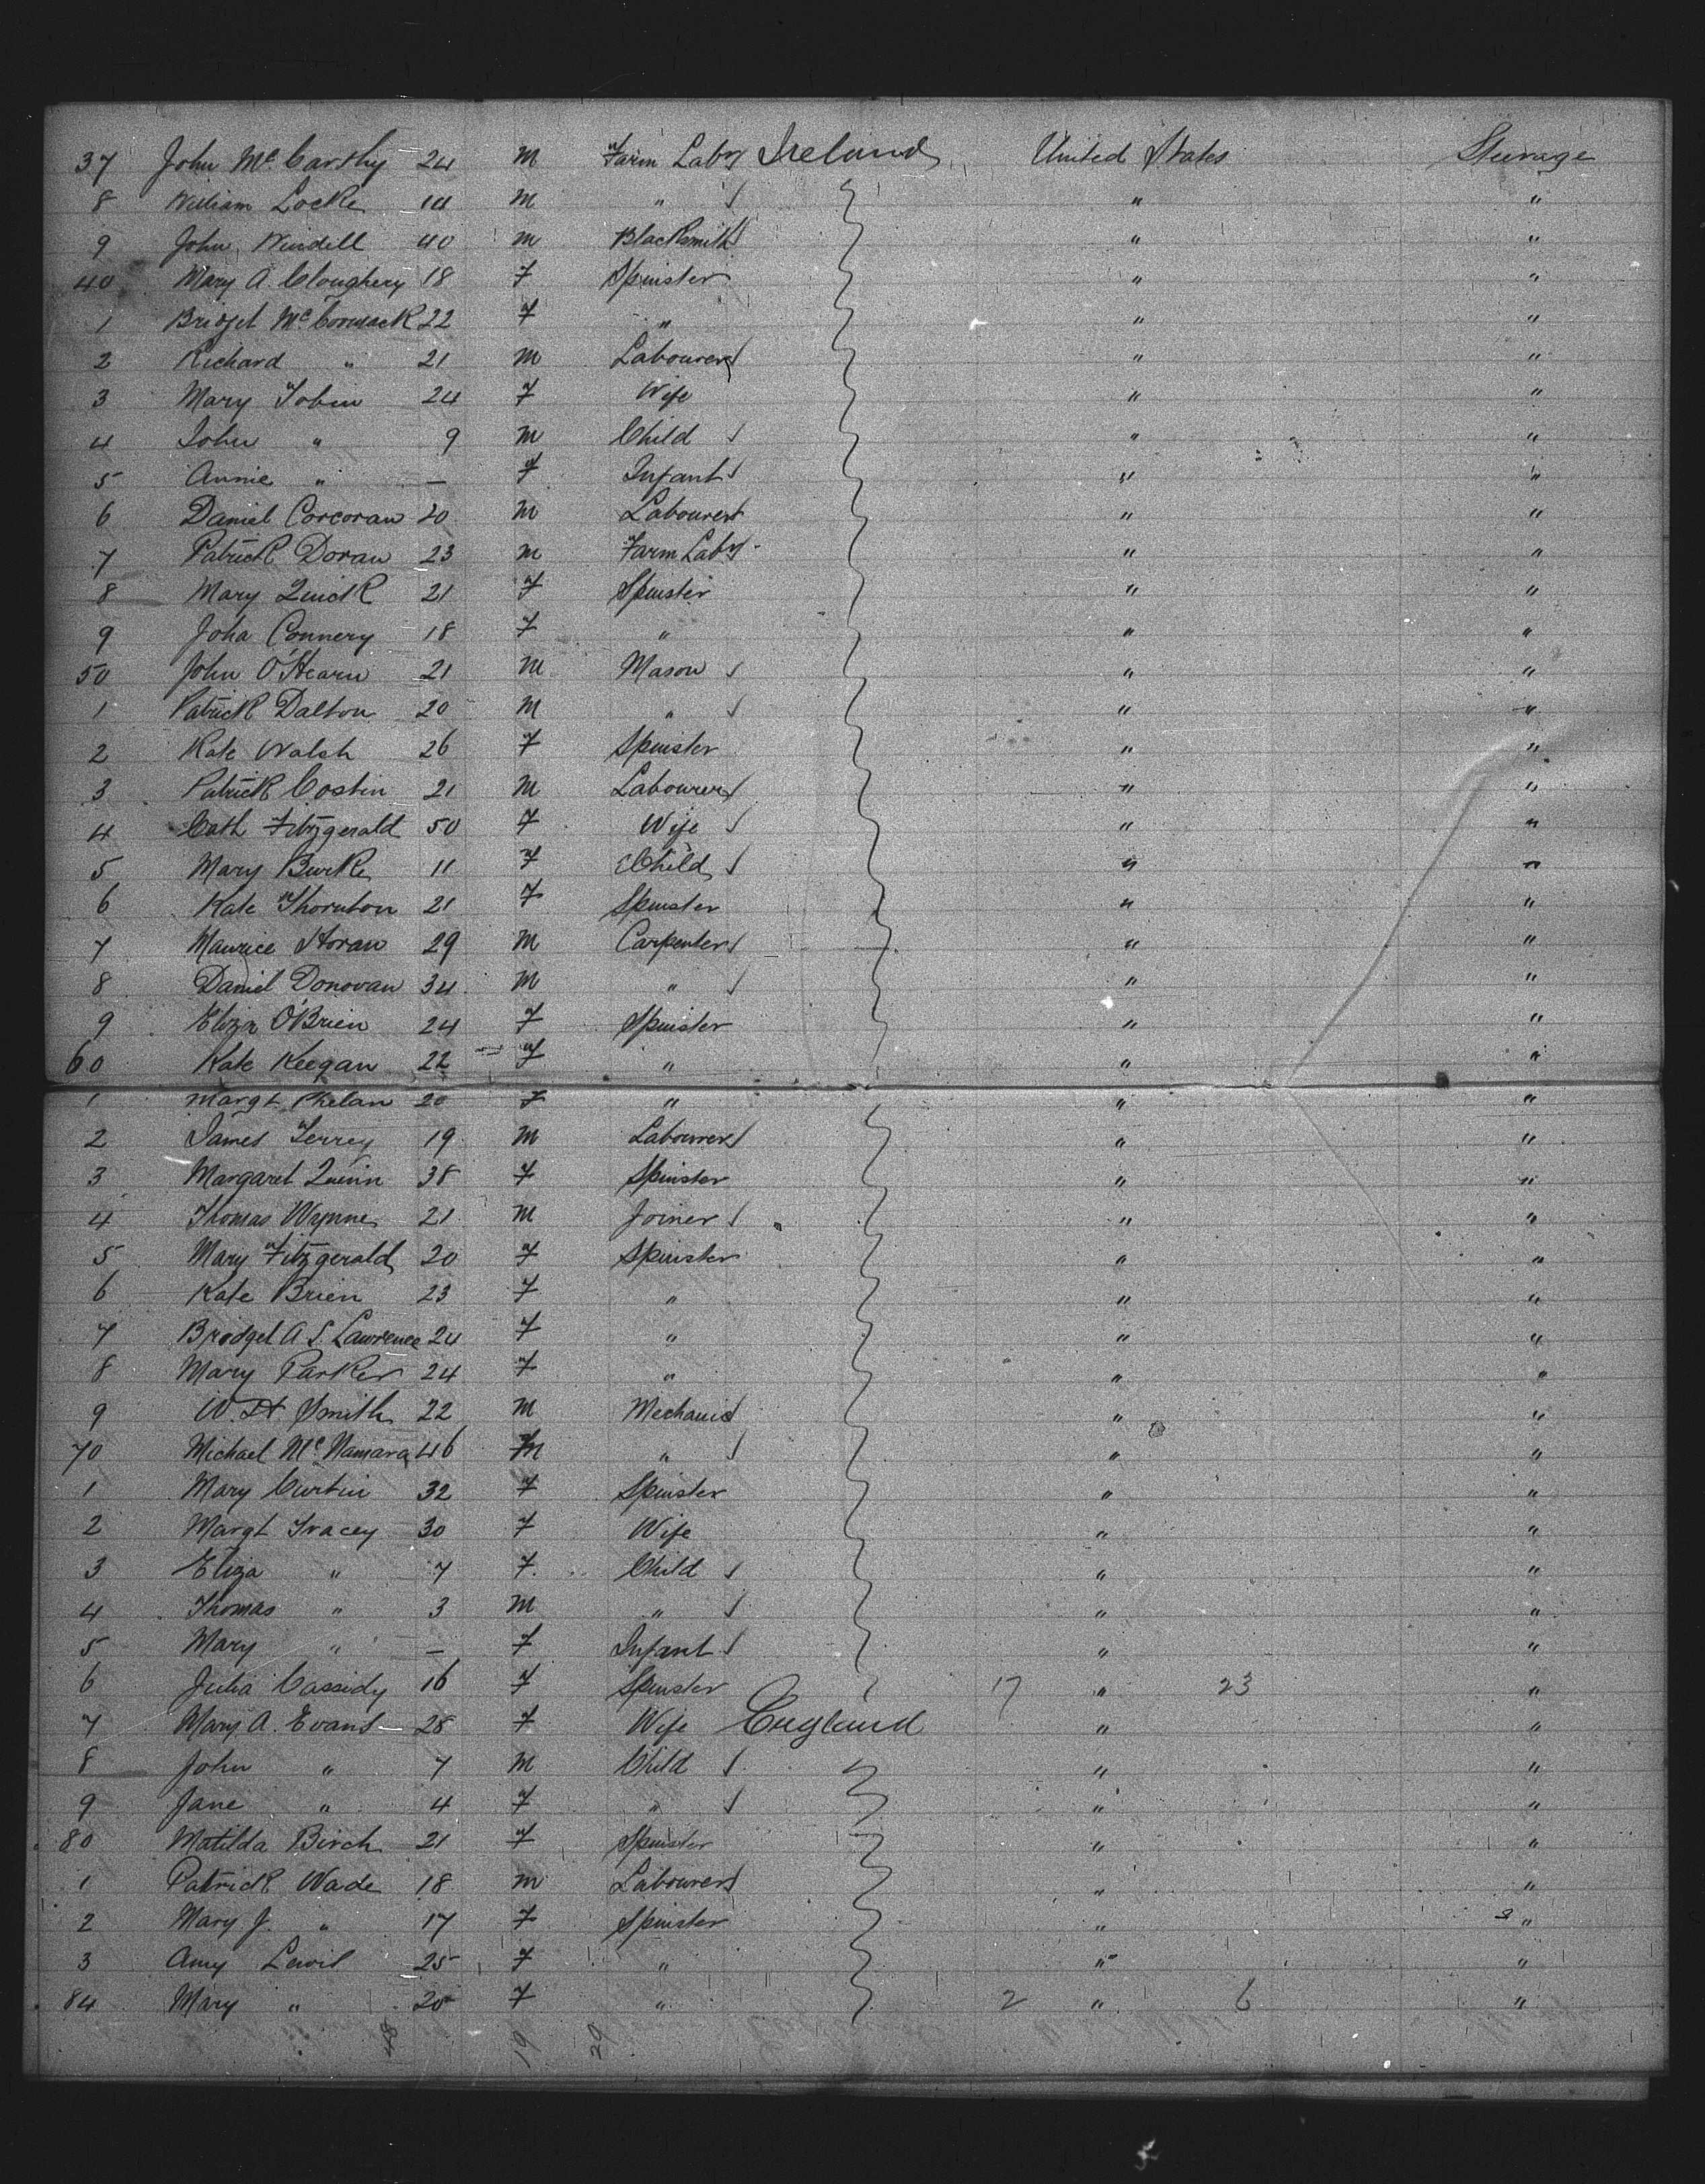 37 John Mc Carthy 24 m Farm Labr Ireland United States Steerage
8 William Locke m " " "
9 John Windell 40 m Blacksmith " "
40 Mary A. Cloughery 18 f Spinster " "
1 Bridget McCormack 22 f " " "
2 Richard " 21 m Labourer " "
3 Mary Tobin 24 f Wife " "
4 John " 9 m Child " "
5 Annie " — f Infant " "
6 Daniel Corcoran 20 m Labourer " "
7 Patrick Doran 23 m Farm Labr " "
8 Mary Quick 21 f Spinster " "
9 Joha Connery 18 f " " "
50 John O'Hearn 21 m Mason " "
1 Patrick Dalton 20 m " " "
2 Kate Walsh 26 f Spinster " "
3 Patrick Costin 21 m Labourer " "
4 Cath Fitzgerald 50 f Wife " "
5 Mary Burke 11 f Child " "
6 Kate Thornton 21 f Spinster " "
7 Maurice Horan 29 m Carpenter " "
8 Daniel Donovan 34 m " " "
9 Eliza O'Brien 24 f Spinster " "
60 Kate Keegan 22 f " " "
1 Margt Phelan 20 f " " "
2 James Terrey 19 m Labourer " "
3 Margaret Quinn 38 f Spinster " "
4 Thomas Wynne 21 m Joiner " "
5 Mary Fitzgerald 20 f Spinster " "
6 Kate Brien 23 f " " "
7 Bridget A S. Lawrence 24 f " " "
8 Mary Parker 24 f " " "
9 W. H Smith 22 m Mechanic " "
70 Michael McNamara 46 m " " "
1 Mary Curtin 32 f Spinster " "
2 Margt Tracey 30 f Wife " "
3 Eliza " 7 f Child " "
4 Thomas " 3 m " " "
5 Mary " — f Infant " "
6 Julia Cassidy 16 f Spinster 17 " 23 "
7 Mary A. Evans 28 f Wife England " "
8 John " 7 m Child " "
9 Jane " 4 f " " "
80 Matilda Birch 21 f Spinster " "
1 Patrick Wade 18 m Labourer " "
2 Mary J. " 17 f Spinster " "
3 Amy Lewis 25 f " " "
84 Mary " 20 f " 2 " 6 "
48 19 29